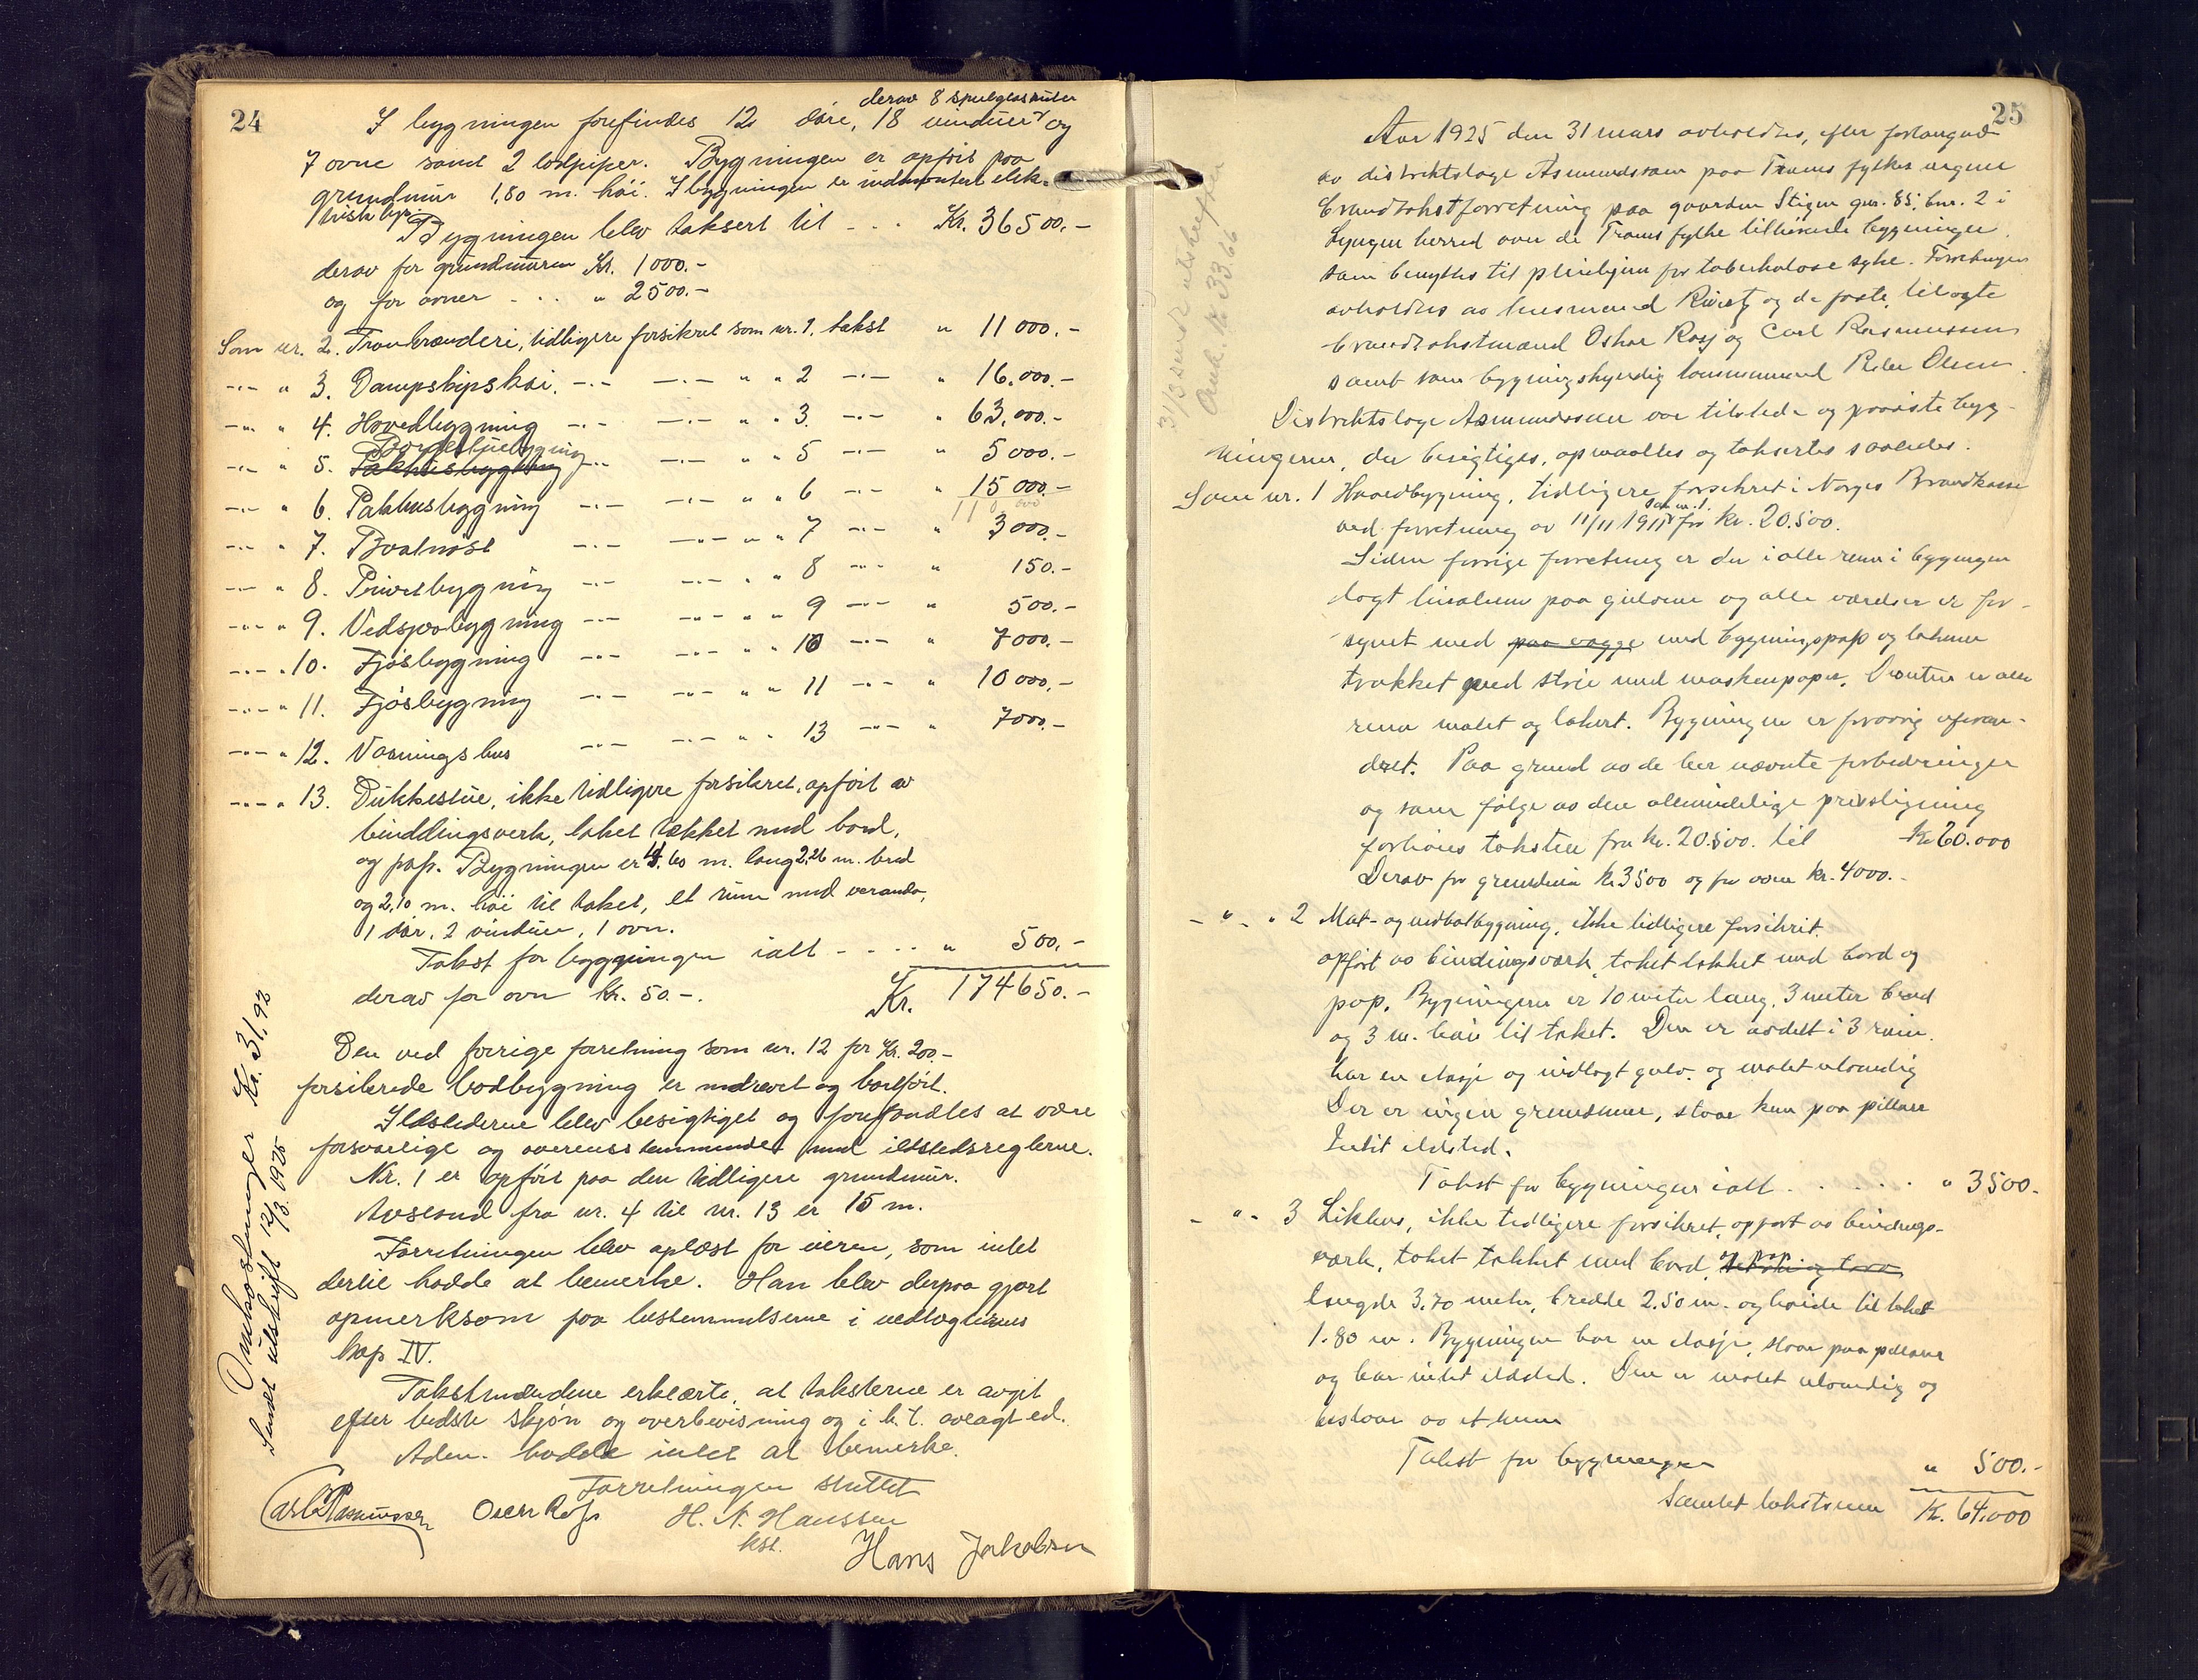 24
derav 8 speilglasruter
I bygningen forefindes 12 döre, 18 vinduer og
7 ovne samt 2 lodpiper. Bygningen er opfört paa
grundmur 1,80 m. höi. I bygningen er indmontert elek-
trisk lys.
Bygningen blev taksert til - - - Kr. 36500.-
derav for grundmuren Kr. 1000.-
og for ovner - - - " 2500.-
Som nr. 2. Tranbrænderi, tidligere forsikret som nr. 1. takst " 11000.-
-"- " 3. Dampskipskai. -"- -"- " " 2 -"- " 16.000.-
-"- " 4. Hovedbygning -"- -"- " " 3. -"- " 63.000.-
Borgestuebygning
-"- " 5. Pakhusbygning -"- -"- " " 5 -"- " 5000.-
-"- " 6. Pakhusbygning -"- -"- " " 6 -"- " 15000.-
-"- " 7. Baatnöst -"- -"- " " 7 -"- " 3000.-
-"- " 8. Privetbygning -"- -"- " " 8 -"- " 150.-
-"- " 9. Vedsjaabygning -"- -"- " " 9 -"- " 500.-
-"- " 10. Fjösbygning -"- -"- " " 10 -"- " 7000.-
-"- " 11. Fjösbygning -"- -"- " " 11 -"- " 10000.-
-"- " 12. Vaaningshus -"- -"- " " 13 -"- " 7000.-
-"- " 13. Dukkestue, ikke tidligere forsikret, opfört av
binddingsverk, taket tækket med bord,
og pap. Bygningen er 4.60 m. lang 2,26 m. bred
og 2,10 m. höi til taket, et rum med veranda,
1 dör, 2 vinduer, 1 ovn.
Takst for bygningen ialt - - - - " 500.-
derav for ovn Kr. 50.-. Kr. 174650.-
Den ved forrige forretning som nr. 12 for Kr. 200.-
forsikrede bodbygning er nedrevet og bortfört.
Ildstederne blev besigtiget og forefandtes at være
forsvarlige og overensstemmende med ildstedsreglerne.
Nr. 1 er opfört paa den tidligere grundmur.
Avstand fra nr. 4 til nr. 13 er 15 m.
Forretningen blev oplæst for eieren, som intet
dertil hadde at bemerke. Han blev derpaa gjort
opmerksom paa bestemmelserne i vedtægternes
kap IV.
Takstmændene erklærte, at taksterne er avgit
efter bedste skjön og overbevisning og i h. t. avlagt ed.
Adm. hadde intet at bemerke.
Forretningen sluttet
Carl Rasmussen Oscar Rasj H. N. Hanssen
kst. Hans Jakobsen
Omkostninger Kr. 31,92
Sendt utskrift 12/3 1925
25
Aar 1925 den 31 mars avholdtes, efter forlangende
av distriktslæge Asmundssen paa Troms fylkes vegne
brandtakstforretning paa gaarden Stigen gnr. 85, bnr. 2 i
Lyngen herred over de Troms fylke tilhörende bygninger
som benyttes til pleiehjem for tuberkulose syke. Forretningen
avholdtes av lensmand Rivertz og de faste, tilsagte
brandtakstmænd Oskar Rasj og Carl Rasmussen
samt som bygningskyndig tömmermand Peder Olsen.
Distriktslæge Asmundssen var tilstede og paaviste byg-
ningerne, der besigtiges, opmaaltes og taksertes saaledes:
Som nr. 1 Hovedbygning, tidligere forsikret i Norges Brandkasse
som nr. 1.
ved forretning av 11/11 1911 for kr. 20.500.
Siden forrige forretning er der i alle rum i bygningen
lagt linoleum paa gulvene og alle værelser er for-
synet med paa vægge med bygningspap og takene
trukket med strie med maskinpapir. Desuten er alle
rum malet og lakert. Bygningen er forövrig uforan-
dret. Paa grund av de her nævnte forbedringer
og som fölge av den almindelige prisstigning
forhöies taksten fra kr. 20.500. til Kr 60.000
Derav for grundmur kr 3500 og for ovne kr. 4000.-
- " - " 2 Mat- og vedbodbygning, ikke tidligere forsikret.
opfört av bindingsværk, taket tækket med bord og
pap. Bygningen er 10 meter lang, 3 meter bred
og 3 m. höi til taket. Den er avdelt i 3 rum.
har en etasje og indlagt gulv. og malet utvendig
Der er ingen grundmur, staar kun paa pillarer
Intet ildsted.
Takst for bygningen ialt . . . . . " 3500.
- " - 3 Likhus, ikke tidligere forsikret, opfört av bindings-
værk, taket tækket med bord, og pap
længde 3.70 meter, bredde 2.50 m. og höide til taket
1.80 m. Bygningen har en etasje, staar paa pillarer
og har intet ildsted. Den er malet utvendig og
bestaar av et rum
Takst for bygningen " 500.-
Samlet takstsum Kr. 64.000
31/3 sendt utskrift
Omk. kr 33.66